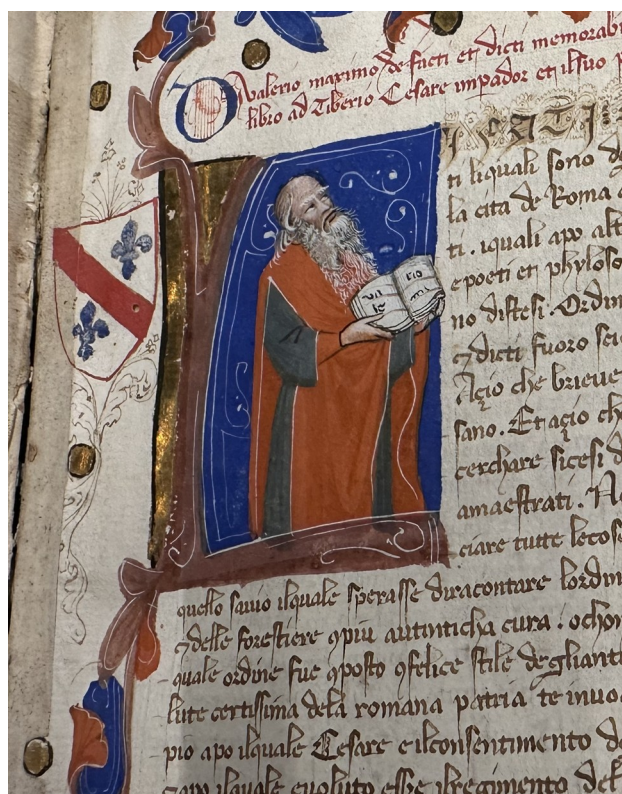 Valerio maximo de facti et dicti memorabi
libro ad Tiberio Cesare impador et ilsuo p
ti liquali sono de
la cita de Roma
ti . iquali apo alt
e poeti et phyloso
no distesi . Ordin
dicti fuoro sci
Açio che brieve
sano . Et açio ch
cerchare sicesi d
amaestrati . N
ciare tutte lecose
quello savio ilquale sperasse diracontare lordin
delle forestiere più autinticha cura
quale ordine fue 9posto 9felice stile deglianti
lute certissima dela romana patria te invo
pio apo ilquale Cesare e ilconsentimento d
apo ilquale evoluto esse ilregimento del